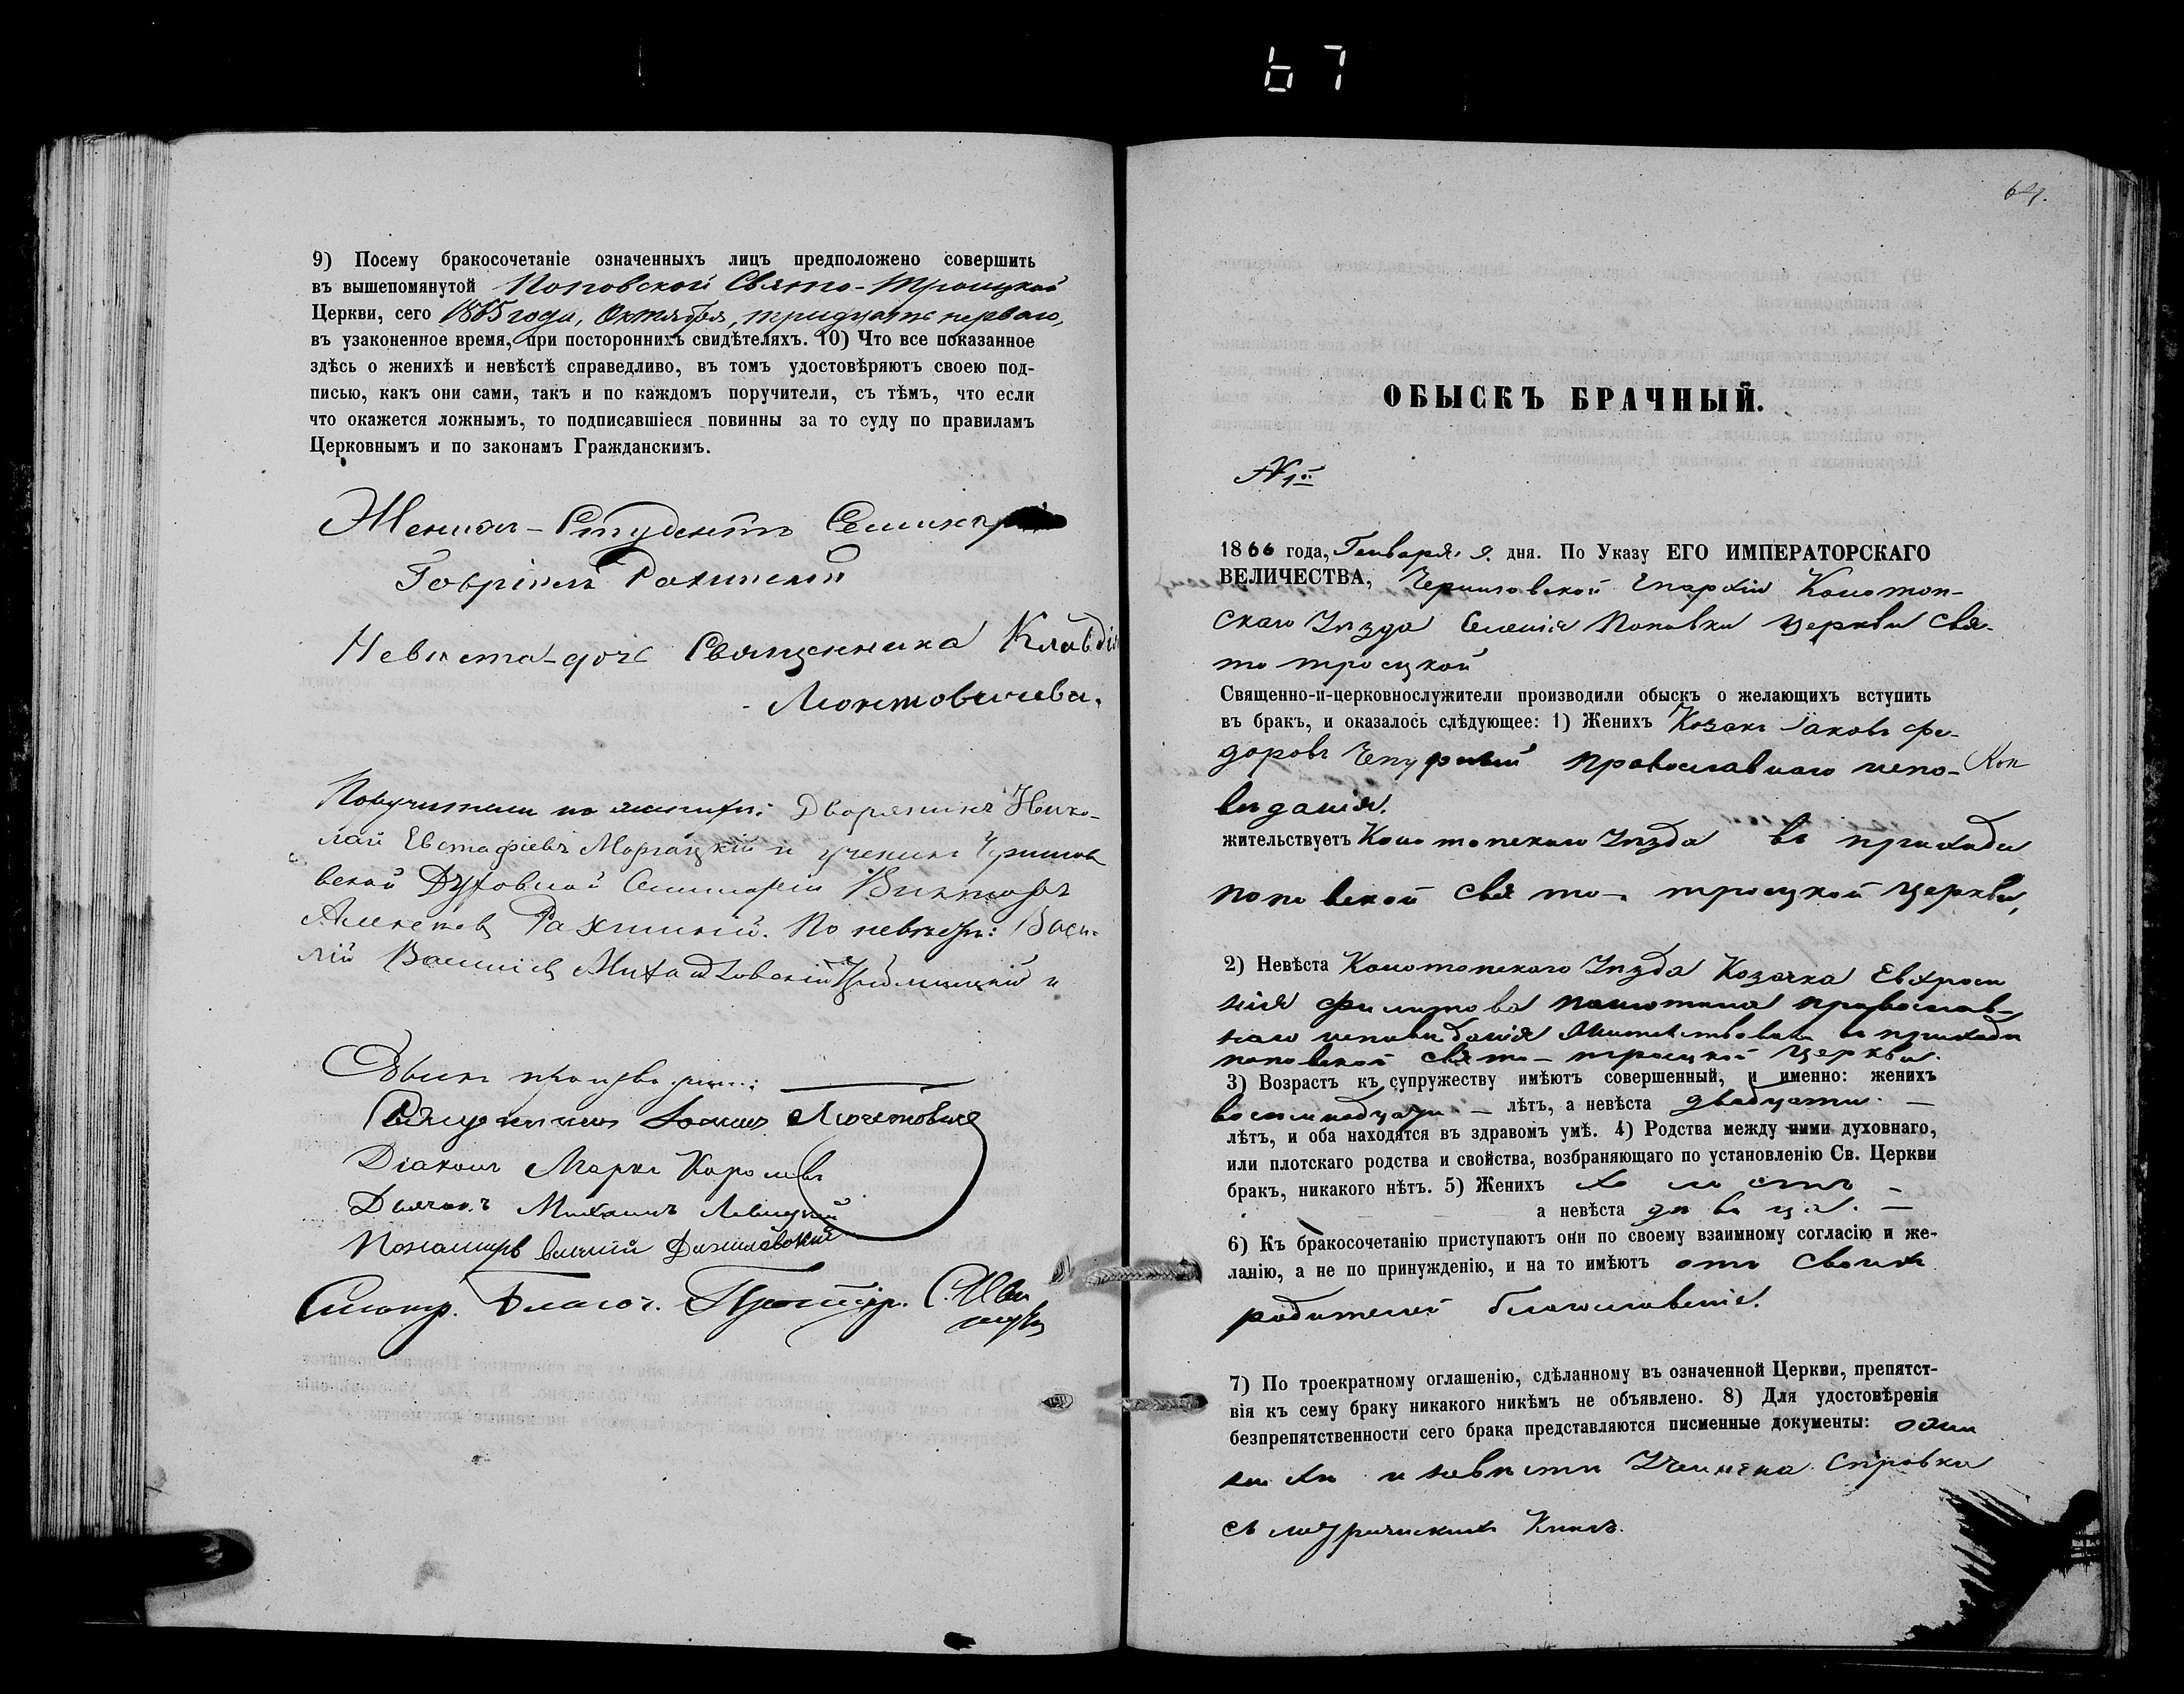 67
9) Посему бракосочетаніе означенныхъ лицъ предположено совершить
въ вышепомянутой Поповской Свято-Троицкой
Церкви, сего 1865 года, Октября, тридцать перваго,
въ узаконенное время, при постороннихъ свидѣтеляхъ. 10) Что все показанное
здѣсь о женихѣ и невѣстѣ справедливо, въ томъ удостовѣряютъ своею под-
писью, какъ они сами, такъ и по каждомъ поручители, съ тѣмъ, что если
что окажется ложнымъ, то подписавшіеся повинны за то суду по правиламъ
Церковнымъ и по законамъ Гражданскимъ.
Женихъ - Студентъ Семинаріи
Гавріилъ Рахинскій
Невѣста - дочь Священника Клавдія
Леонтовичева.
Поручители по женихѣ: Дворянинъ Нико-
лай Евстафіевъ и ученикъ Чернигов
вской Духовной Семинаріи Викторъ
По невѣстѣ: Васи-
лій и
Обыскъ производили:
Священникъ Іоаннъ Леонтовичъ
Діаконъ Марко Королевъ
Дьячокъ Михаилъ Левицкій
Пономарь
Благоч.
64.
ОБЫСКЪ БРАЧНЫЙ.
№ 1й
1866 года, Генваря 9. дня. По Указу ЕГО ИМПЕРАТОРСКАГО
ВЕЛИЧЕСТВА, Черниговской Епархіи Конотоп-
скаго Уѣзда Селенія Поповки церкви Свя-
то троецкой
Священно-и-церковнослужители производили обыскъ о желающихъ вступить
въ бракъ, и оказалось слѣдующее: 1) Женихъ Козакъ Іаковъ Фе-
доровъ Чепурный православнаго испо-
вѣданія.
жительствуетъ Конотопскаго Уѣзда въ приходѣ
поповской свято-троецкой церкви,
2) Невѣста Конотопскаго Уѣзда Козачка Евфроси
нія Филипова православ-
наго исповѣданія приходѣ
поповской свято-троецкой церкви.
3) Возрастъ къ супружеству имѣютъ совершенный, и именно: женихъ
восемнадцати — лѣтъ, а невѣста двадцати. —
лѣтъ, и оба находятся въ здравомъ умѣ. 4) Родства между ними духовнаго,
или плотскаго родства и свойства, возбраняющаго по установленію Св. Церкви
бракъ, никакого нѣтъ. 5) Женихъ холостъ —
а невѣста дѣвица. —
6) Къ бракосочетанію приступаютъ они по своему взаимному согласію и же-
ланію, а не по принужденію, и на то имѣютъ отъ своихъ
родителей благословеніе.
7) По троекратному оглашенію, сдѣланному въ означенной Церкви, препятст-
вія къ сему браку никакого никѣмъ не объявлено. 8) Для удостовѣренія
безпрепятственности сего брака представляются писменные документы: о жени
хѣ и невѣсти Учинена справка
съ метрическихъ Книгъ.